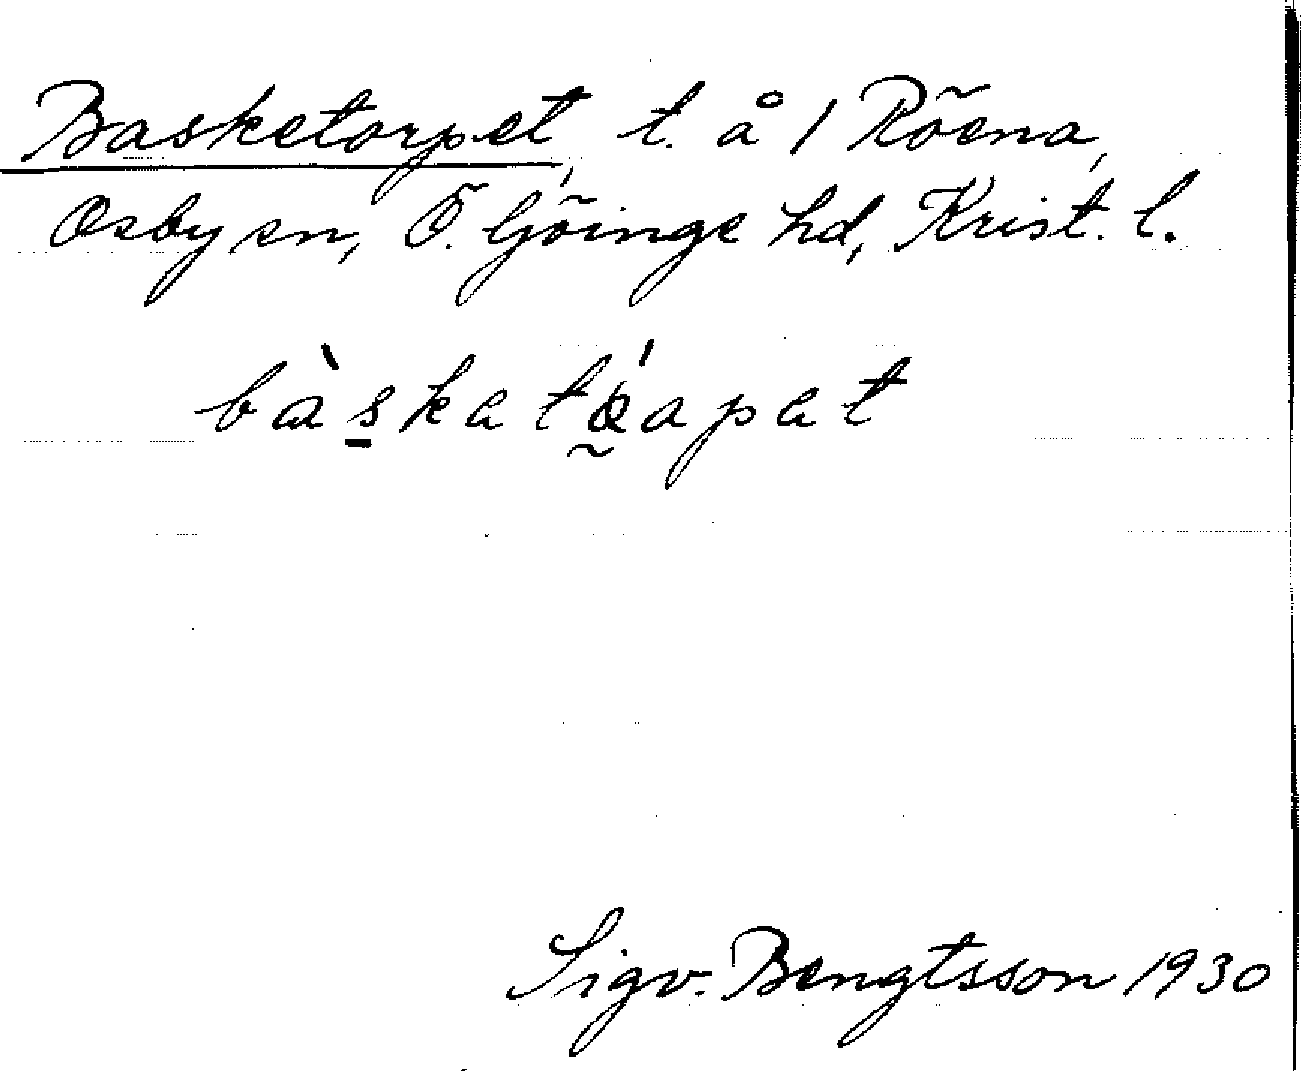 Basketorpet, t. å 1 Röena,
Osby sn, Ö. Göinge hd, Krist. l.
bàskatǿapat
Sigv. Bengtsson 1930